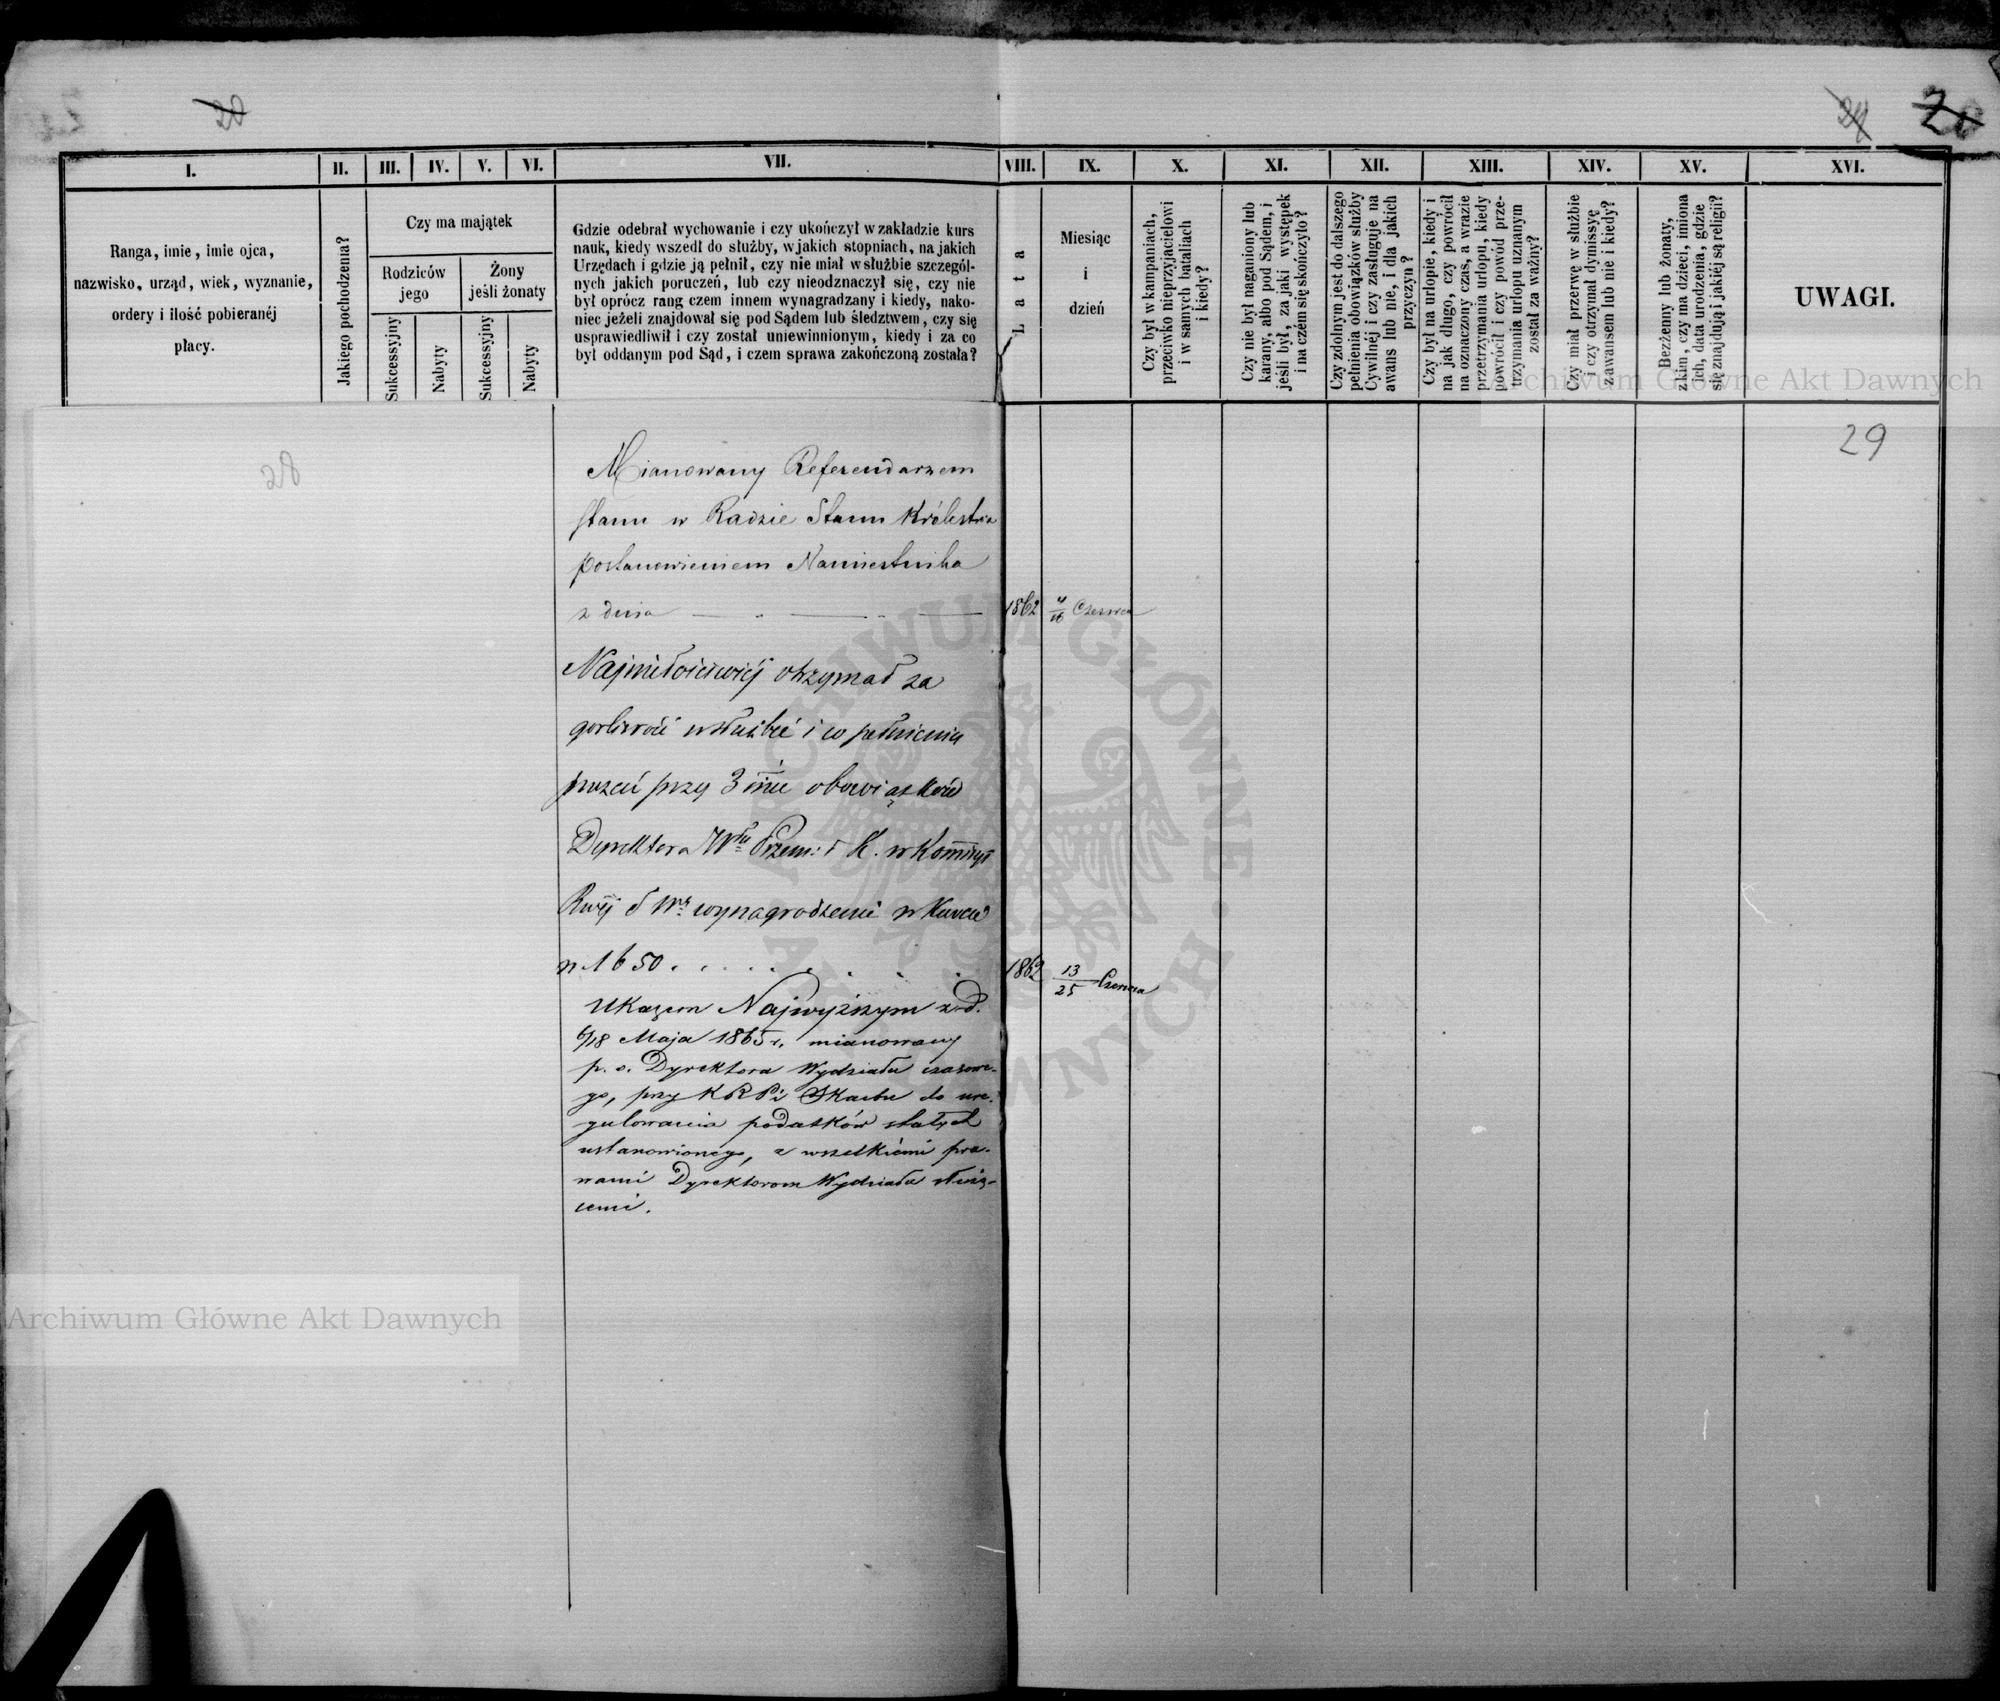 28
24
20
I.
II.
III.
IV.
V.
VI.
VII.
VIII.
IX.
X.
XI.
XII.
XIII.
XIV.
XV.
XVI.
Ranga, imie, imie ojca,
nazwisko, urząd, wiek, wyznanie,
ordery i ilość pobieranéj
płacy.
Jakiego pochodzenia?
Czy ma majątek
Rodziców
jego
Żony
jeśli żonaty
Sukcessyjny
Nabyty
Sukcessyjny
Nabyty
Gdzie odebrał wychowanie i czy ukończył w zakładzie kurs
nauk, kiedy wszedł do służby, w jakich stopniach, na jakich
Urzędach i gdzie ją pełnił, czy nie miał w służbie szczegól-
nych jakich poruczeń, lub czy nieodznaczył się, czy nie
był oprócz rang czem innem wynagradzany i kiedy, nako-
niec jeżeli znajdował się pod Sądem lub śledztwem, czy się
usprawiedliwił i czy został uniewinnionym, kiedy i za co
był oddanym pod Sąd, i czem sprawa zakończoną została?
Lata
Miesiąc
i
dzień
Czy był w kampaniach,
przeciwko nieprzyjacielowi
i w samych bataliach
i kiedy?
Czy nie był naganiony lub
karany, albo pod Sądem, i
jeśli był, za jaki występek
i na czém się skończyło?
Czy zdolnym jest do dalszego
pełnienia obowiązków służby
Cywilnéj i czy zasługuje na
awans lub nie, i dla jakich
przyczyn?
Czy był na urlopie, kiedy i
na jak długo, czy powrócił
na oznaczony czas, a w razie
przetrzymania urlopu, kiedy
powrócił i czy powód prze-
trzymania urlopu uznanym
został za ważny?
Czy miał przerwę w służbie
i czy otrzymał dymissyę
z awansem lub nie i kiedy?
Bezżenny lub żonaty,
z kim, czy ma dzieci, imiona
ich, data urodzenia, gdzie
się znajdują i jakiéj są religii?
UWAGI.
Archiwum Główne Akt Dawnych
29
28
Mianowany Referendarzem
Stanu w Radzie Stanu Królestwa
postanowieniem Namiestnika
z dnia
1862 4/16 Czerwca
Najmiłościwiéj otrzymał za
gorliwość w służbie i w pełnieniu
przez przy 3 inne obowiązków
Dyrektora Włu Przem: i H. w Kommissyi
Rwéj S. W. wynagrodzenie w kwocie
rs. 1650. 1862 13/25 Czerwca
Ukazem Najwyższym z d.
6/18 Maja 1865 r. mianowany
p. o. Dyrektora Wydziału czasowe-
go, przy K R P i Skarbu do ure-
gulowania podatków stałych
ustanowionego, z wszelkiémi pra-
wami Dyrektorom Wydziału służą-
cemi.
Archiwum Główne Akt Dawnych
ARCHIWUM GŁÓWNE AKT DAWNYCH